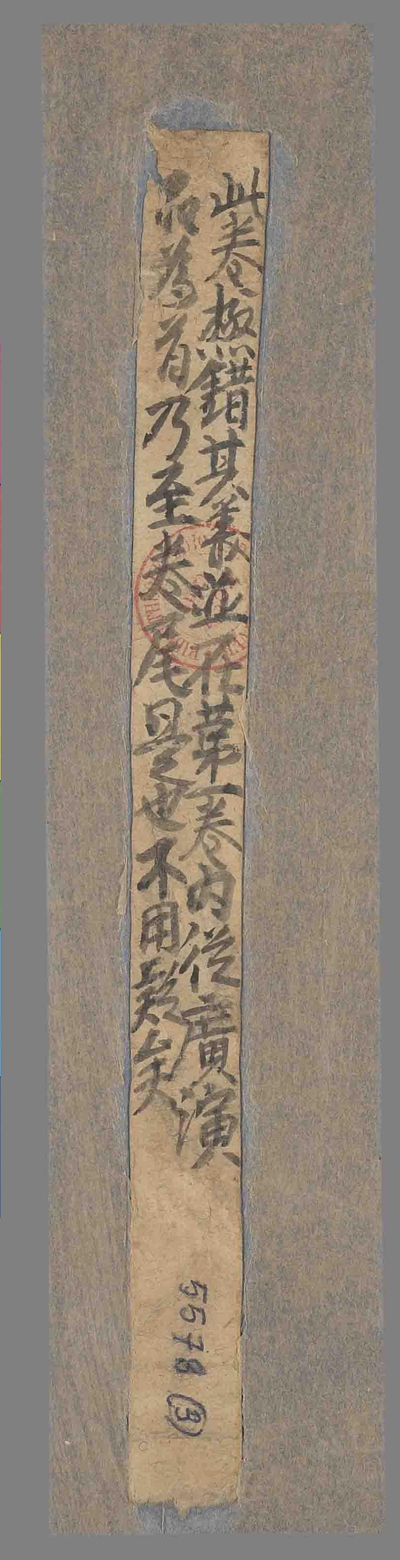 此卷極錯其義並在第一卷內從廣演
品為首乃至卷尾是也不用疑矣
5578 ③